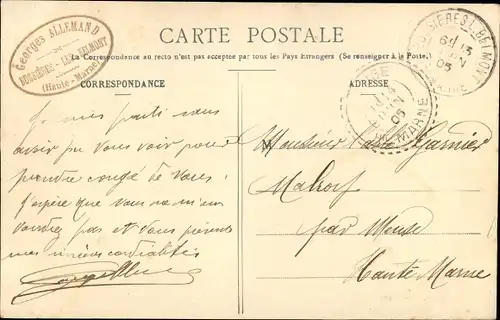 Georges ALLEMAND
DE
BUSSIÈRES-LEZ-BELMONT
(Haute-Marne)
CARTE POSTALE
La Correspondance au recto n'est pas acceptée par tous les Pays Étrangers (Se renseigner à la Poste)
CORRESPONDANCE
ADRESSE
BELMONT
05
05
MARNE
Je suis parti sans
avoir pu vous voir pour
prendre congé de vous.
J'espère que vous ne m'en
voudrez pas et vous présente
mes sincères cordialités
Monsieur Garnier
par Meuse
Haute Marne